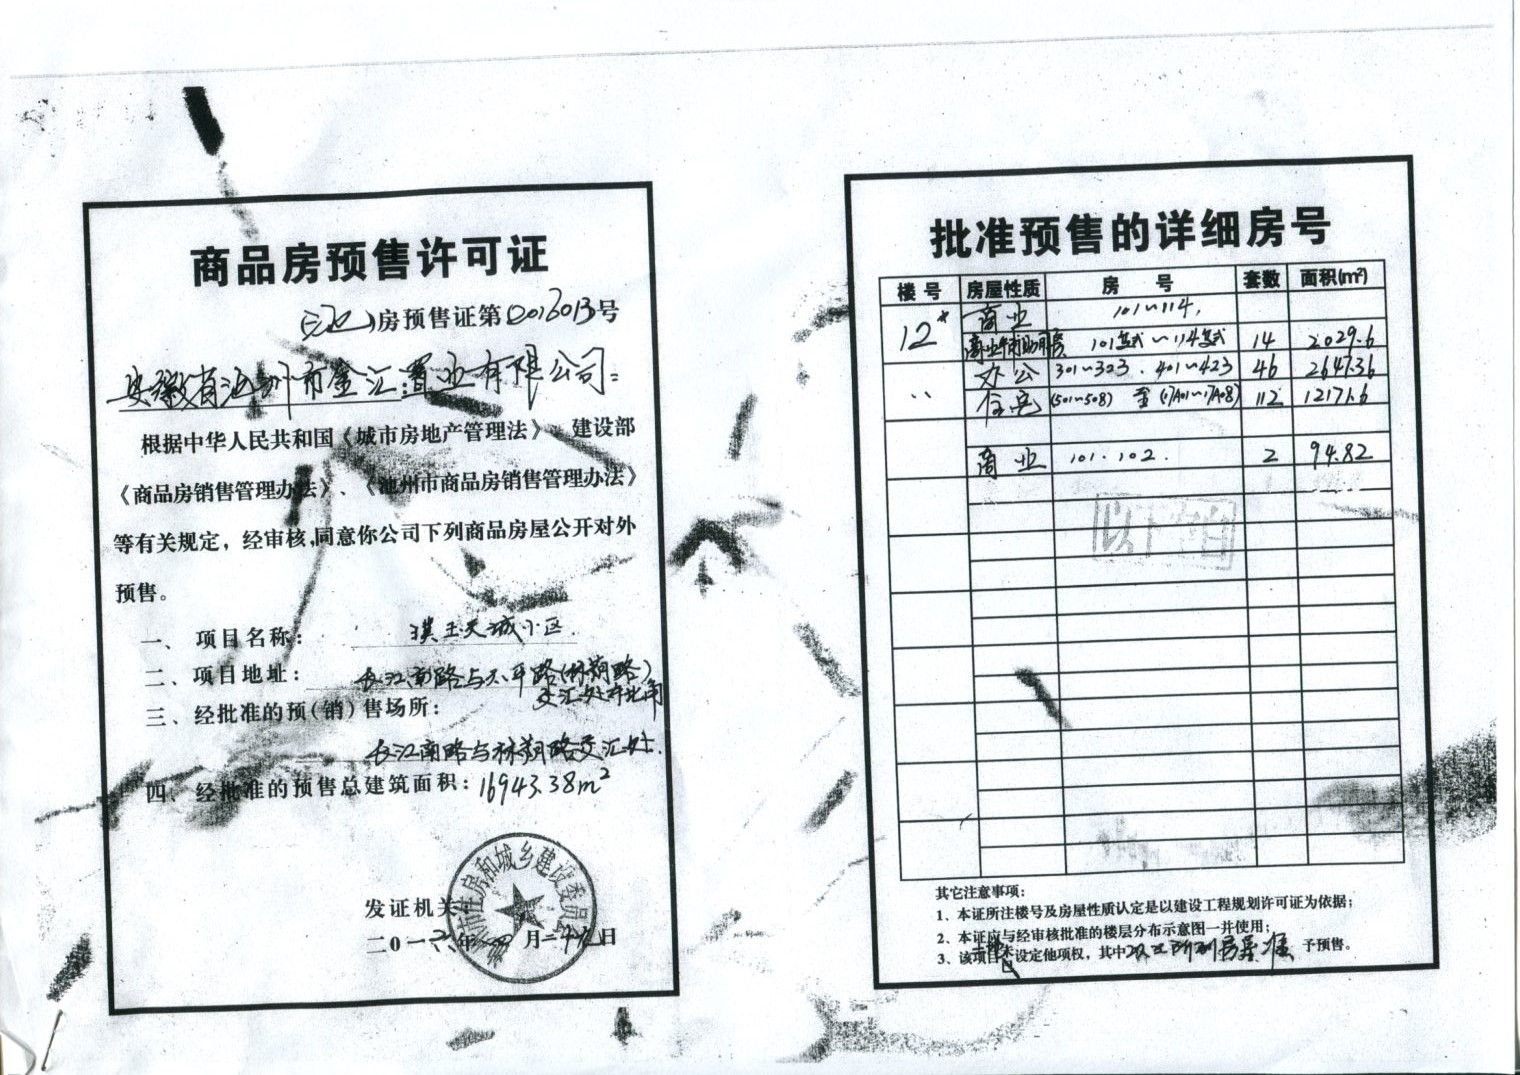 商品房预售许可证
(池)房预售证第2016013号
安徽省池州市金汇置业有限公司:
根据中华人民共和国《城市房地产管理法》、建设部
《商品房销售管理办法》、《池州市商品房销售管理办法》
等有关规定，经审核,同意你公司下列商品房屋公开对外
预售。
一、项目名称: 琪玉天城小区
二、项目地址: 长江南路与太平路(栋翔路)
交汇处西北角
三、经批准的预(销)售场所:
长江南路与栋翔路交汇处.
四、经批准的预售总建筑面积: 16943.38m²
发证机关
市住房和城乡建设委员
二0一六年四月二十九日
批准预售的详细房号
楼号 房屋性质 房号 套数 面积(m²)
12# 商业 101~114,
商业辅助用房 101复式~114复式 14 2029.6
〃 办公 301~323. 401~423 46 2647.36
住宅 (501~508) 至 (17A01~17A08) 112 12171.6
商业 101.102. 2 94.82
以下空白
其它注意事项:
1、本证所注楼号及房屋性质认定是以建设工程规划许可证为依据;
2、本证应与经审核批准的楼层分布示意图一并使用;
3、该项目土地已设定他项权，其中以上所列房屋准予预售。